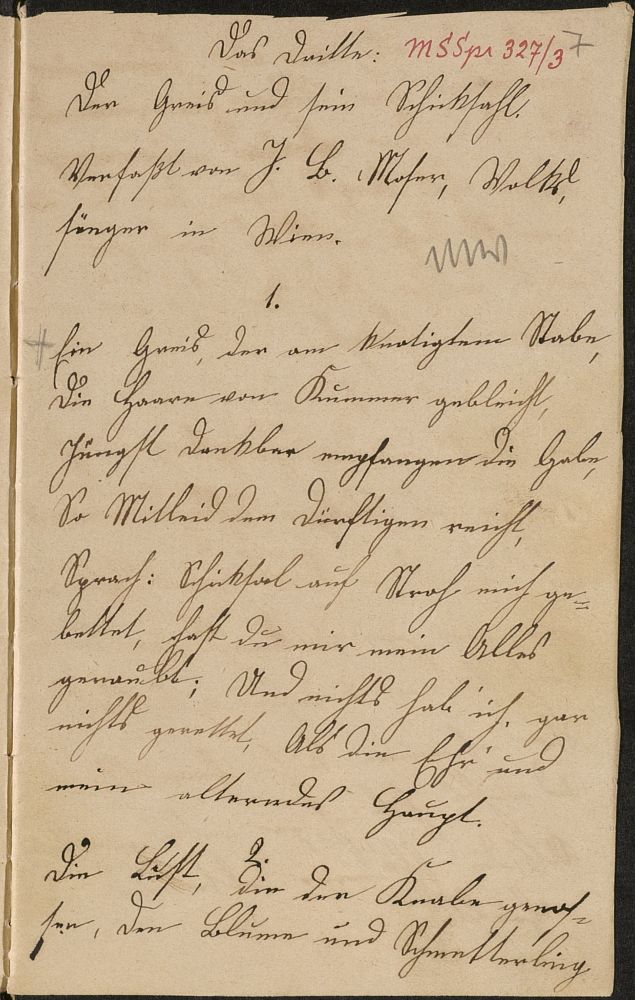 Das Dritte: MSSpr 327/3 7
Der Greis und sein Schicksahl.
Verfaßt von J. B. Moser, Volks,
sänger in Wien.
1.
Ein Greis, der am knotigtem Stabe,
Die Haare von Kummer gebleicht,
Jüngst dankbar empfangen die Gabe,
So Mitleid dem Dürftigen reicht,
Sprach: Schicksal auf Stroh mich ge=
bettet, hast du mir mein Alles
geraubt; Und nichts hab ich, gar
nichts gerettet, Als die Ehr' und
mein alterndes Haupt.
2.
Die Lust, die der Knabe genos=
sen, Den Blume und Schmetterling